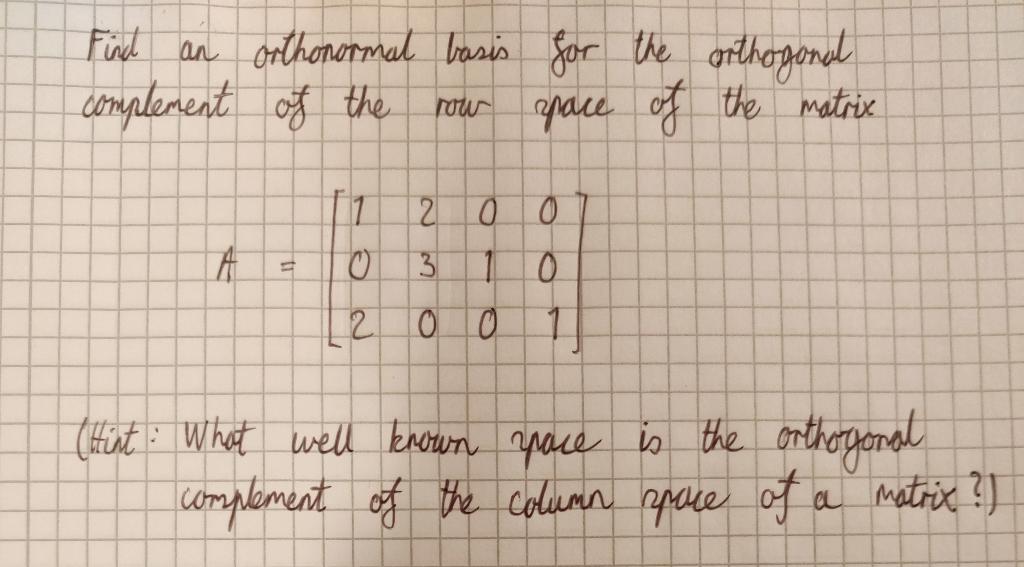 Find an orthonormal basis for the orthogonal
complement of the row space of the matrix
A = [1 2 0 0
0 3 1 0
2 0 0 1]
(Hint: What well known space is the orthogonal
complement of the column space of a matrix?)